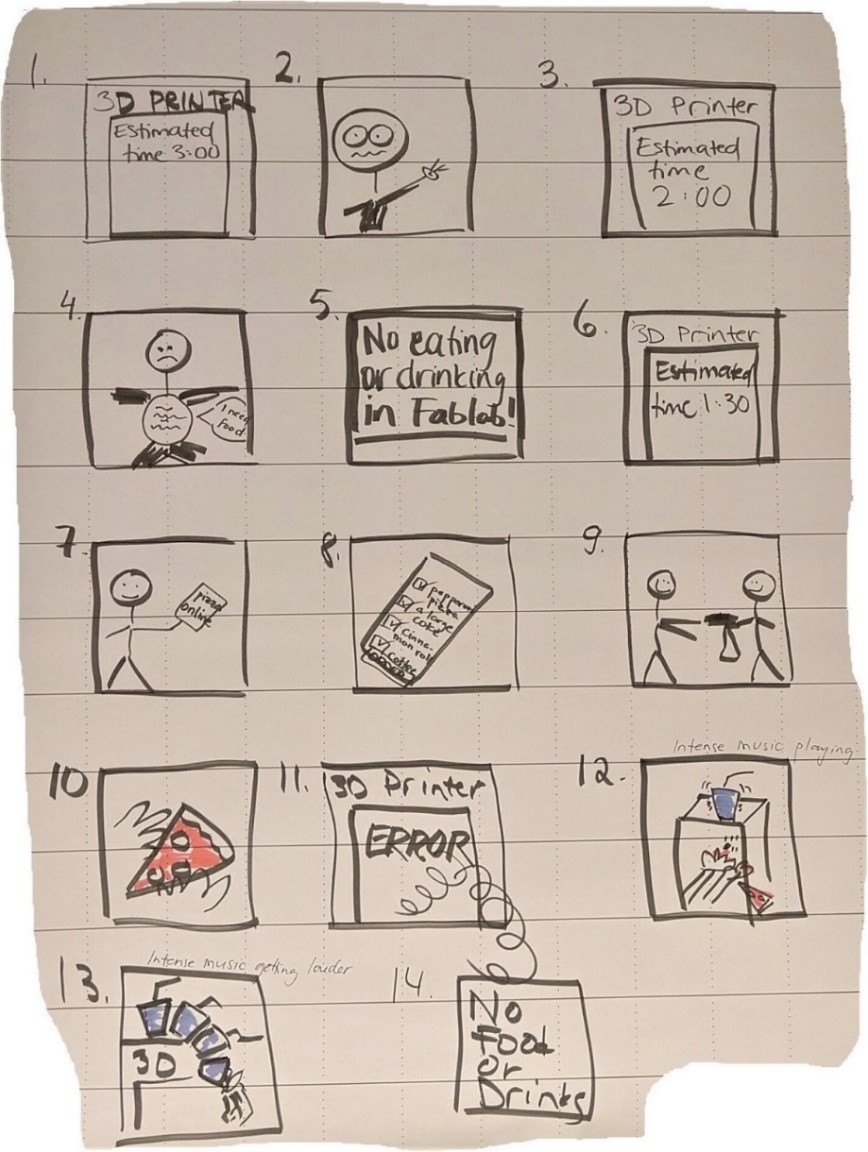 1.
3D PRINTER
Estimated
time 3:00
2.
3.
3D Printer
Estimated
time
2:00
4.
I need
food
5.
No eating
or drinking
in Fablab!
6.
3D Printer
Estimated
time 1:30
7
pizza
online
8.
pizza
a large
coke
cinna-
mon roll
coffee
9.
10
11.
3D Printer
ERROR
Intense music playing
12.
Intense music getting louder
13.
3D
14.
No
Food
or
Drinks